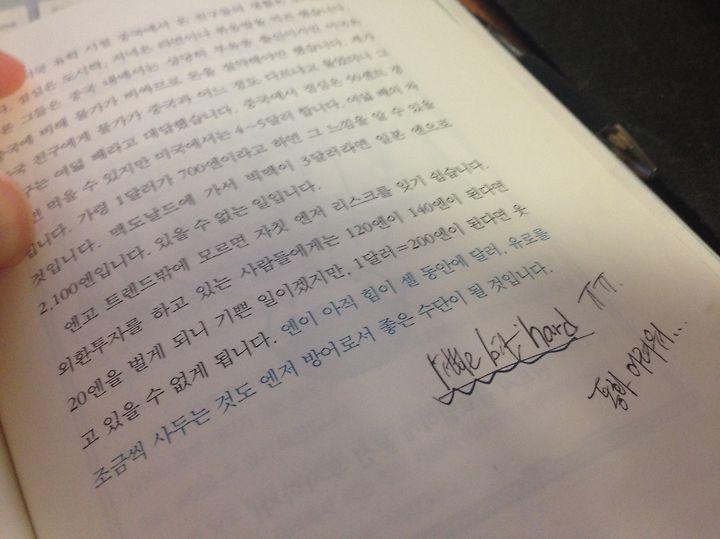 유학 시절 중국에서 온 친구들의 생활은
점심은 도시락, 저녁은 라면이나 볶음밥을
그들은 중국 내에서는 상당히 부유한 출신이지만 미국은
중국에 비해 물가가 비싸므로 돈을 절약해야만 했습니다. 제가
중국 친구에게 물가가 중국과 어느 정도 다르냐고 물었더니 그
구는 여덟 배라고 대답했습니다. 중국에서 점심은 50센트 정
면 먹을 수 있지만 미국에서는 4~5달러 합니다. 여덟 배의 차
입니다. 가령 1달러가 700엔이라고 하면 그 느낌을 알 수 있을
것입니다. 맥도날드에 가서 빅맥이 3달러라면 일본 엔으로
2,100엔입니다. 있을 수 없는 일입니다.
엔고 트렌드밖에 모르면 자칫 엔저 리스크를 잊기 쉽습니다.
외환투자를 하고 있는 사람들에게는 120엔이 140엔이 된다면
20엔을 벌게 되니 기쁜 일이겠지만, 1달러=200엔이 된다면 웃
고 있을 수 없게 됩니다. 엔이 아직 힘이 셀 동안에 달러, 유로를
조금씩 사두는 것도 엔저 방어로서 좋은 수단이 될 것입니다.
little bit hard ㅠㅠ.
통화 어려워...